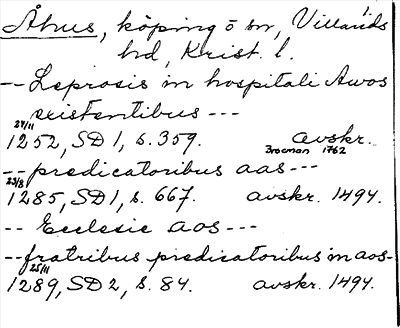 Åhus, köping ö sn, Villands 1.
hd, Krist. l.
-- Leprosis in hospitali Awos
existentibus ---
24/11
1252, SD 1, s. 359. avskr.
Brocman 1762
-- predicatoribus aas ---
23/8
1285, SD 1, s. 667. avskr. 1494.
-- Ecclesie aos ---
-- fratribus predicatoribus in aos-
25/11
1289, SD 2, s. 84. avskr. 1494.